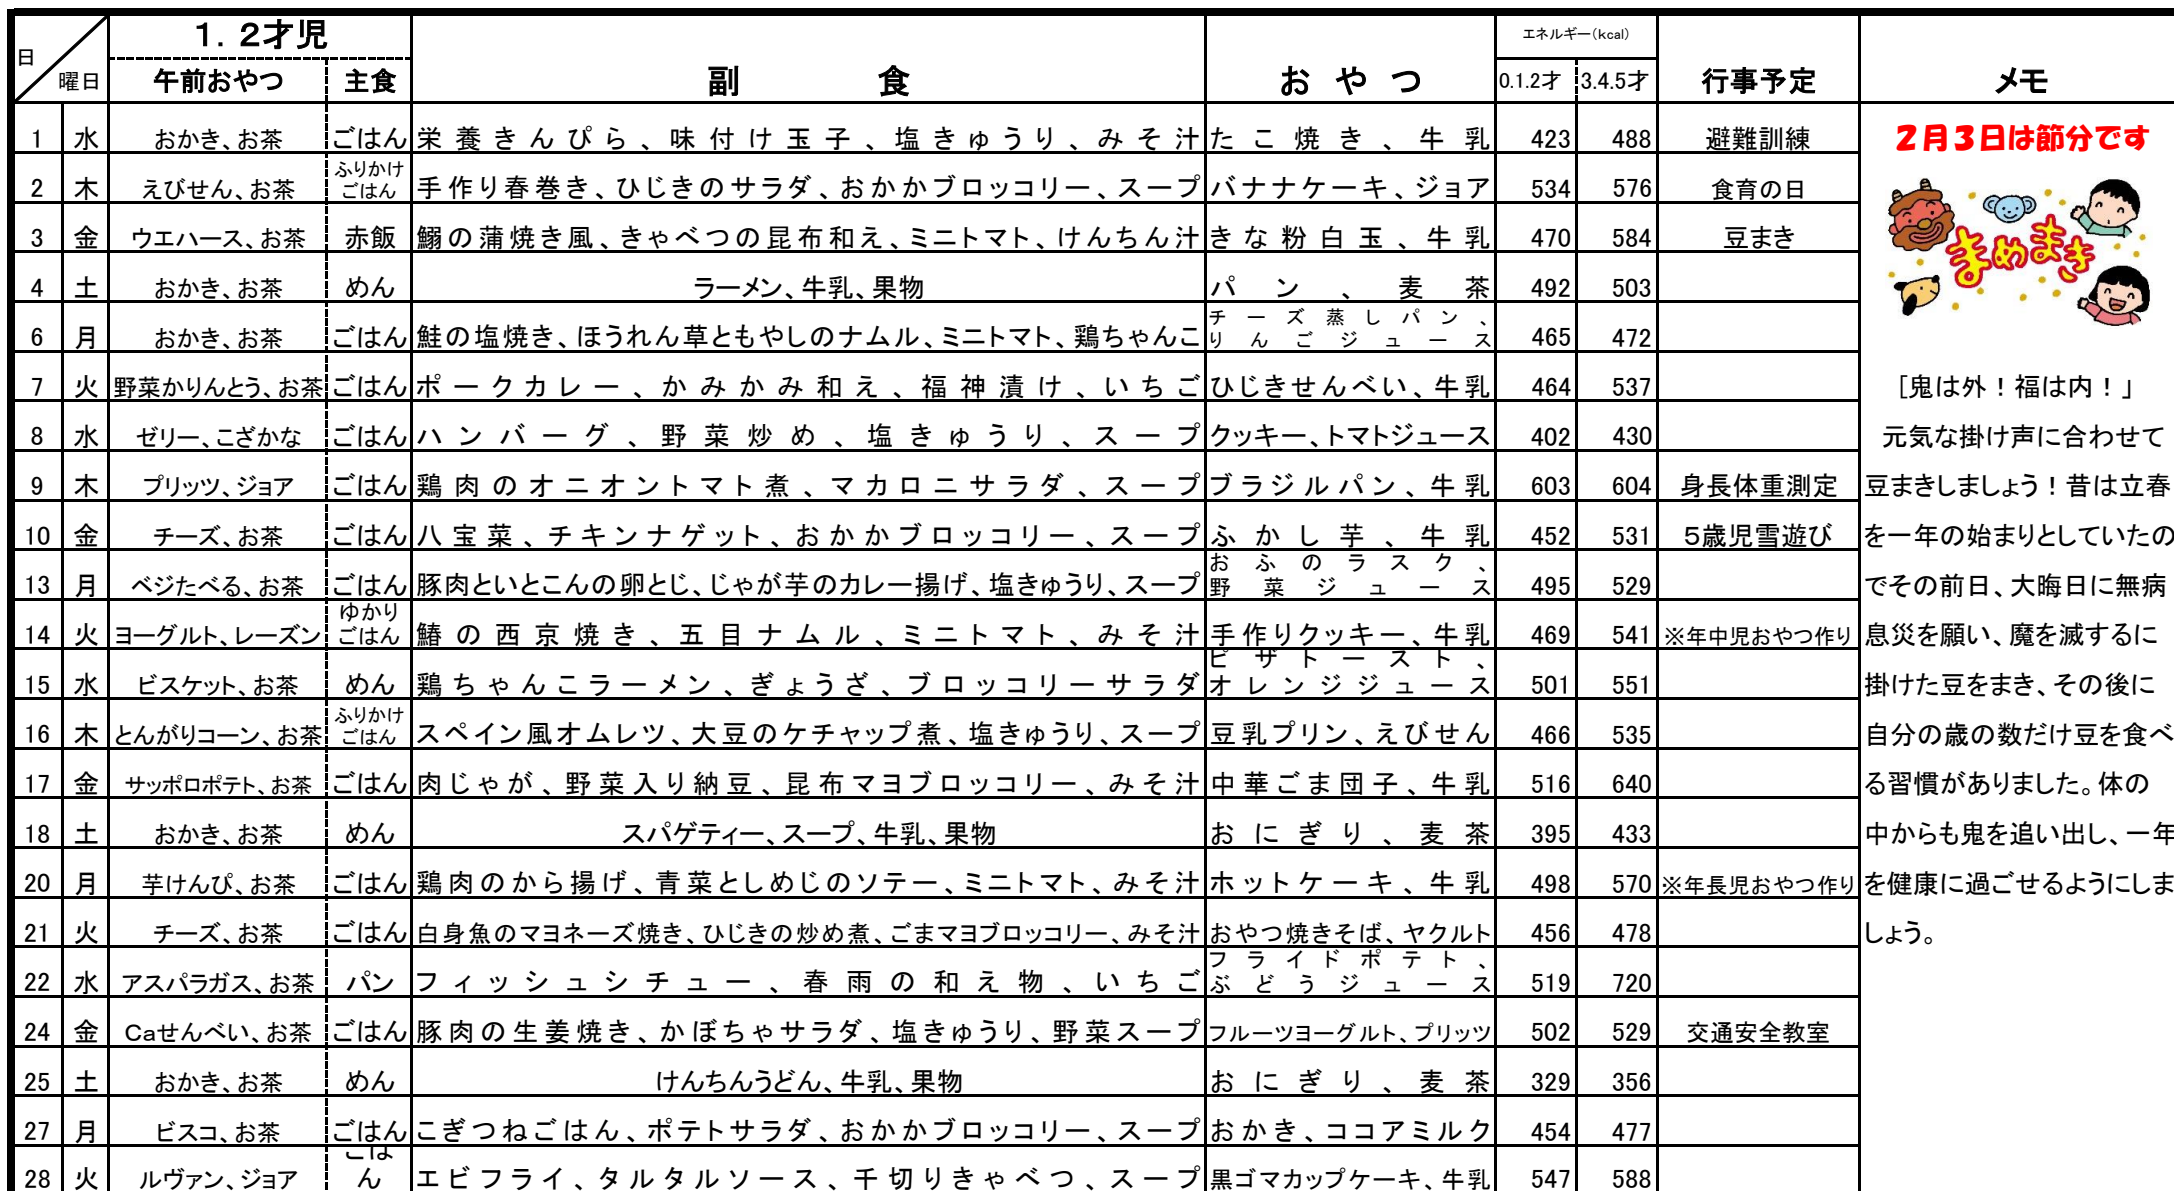 日
曜日
1.2才児
午前おやつ 主食 副食 おやつ エネルギー(kcal) 0.1.2才 3.4.5才 行事予定 メモ
1 水 おかき、お茶 ごはん 栄養きんぴら、味付け玉子、塩きゅうり、みそ汁 たこ焼き、牛乳 423 488 避難訓練
2 木 えびせん、お茶 ふりかけごはん 手作り春巻き、ひじきのサラダ、おかかブロッコリー、スープ バナナケーキ、ジョア 534 576 食育の日
3 金 ウエハース、お茶 赤飯 鰯の蒲焼き風、きゃべつの昆布和え、ミニトマト、けんちん汁 きな粉白玉、牛乳 470 584 豆まき
4 土 おかき、お茶 めん ラーメン、牛乳、果物 パン、麦茶 492 503
6 月 おかき、お茶 ごはん 鮭の塩焼き、ほうれん草ともやしのナムル、ミニトマト、鶏ちゃんこ チーズ蒸しパン、りんごジュース 465 472
7 火 野菜かりんとう、お茶 ごはん ポークカレー、かみかみ和え、福神漬け、いちご ひじきせんべい、牛乳 464 537
8 水 ゼリー、こざかな ごはん ハンバーグ、野菜炒め、塩きゅうり、スープ クッキー、トマトジュース 402 430
9 木 プリッツ、ジョア ごはん 鶏肉のオニオントマト煮、マカロニサラダ、スープ ブラジルパン、牛乳 603 604 身長体重測定
10 金 チーズ、お茶 ごはん 八宝菜、チキンナゲット、おかかブロッコリー、スープ ふかし芋、牛乳 452 531 5歳児雪遊び
13 月 ベジたべる、お茶 ごはん 豚肉といとこんの卵とじ、じゃが芋のカレー揚げ、塩きゅうり、スープ おふのラスク、野菜ジュース 495 529
14 火 ヨーグルト、レーズン ゆかりごはん 鰆の西京焼き、五目ナムル、ミニトマト、みそ汁 手作りクッキー、牛乳 469 541 ※年中児おやつ作り
15 水 ビスケット、お茶 めん 鶏ちゃんこラーメン、ぎょうざ、ブロッコリーサラダ ピザトースト、オレンジジュース 501 551
16 木 とんがりコーン、お茶 ふりかけごはん スペイン風オムレツ、大豆のケチャップ煮、塩きゅうり、スープ 豆乳プリン、えびせん 466 535
17 金 サッポロポテト、お茶 ごはん 肉じゃが、野菜入り納豆、昆布マヨブロッコリー、みそ汁 中華ごま団子、牛乳 516 640
18 土 おかき、お茶 めん スパゲティー、スープ、牛乳、果物 おにぎり、麦茶 395 433
20 月 芋けんぴ、お茶 ごはん 鶏肉のから揚げ、青菜としめじのソテー、ミニトマト、みそ汁 ホットケーキ、牛乳 498 570 ※年長児おやつ作り
21 火 チーズ、お茶 ごはん 白身魚のマヨネーズ焼き、ひじきの炒め煮、ごまマヨブロッコリー、みそ汁 おやつ焼きそば、ヤクルト 456 478
22 水 アスパラガス、お茶 パン フィッシュシチュー、春雨の和え物、いちご フライドポテト、ぶどうジュース 519 720
24 金 Caせんべい、お茶 ごはん 豚肉の生姜焼き、かぼちゃサラダ、塩きゅうり、野菜スープ フルーツヨーグルト、プリッツ 502 529 交通安全教室
25 土 おかき、お茶 めん けんちんうどん、牛乳、果物 おにぎり、麦茶 329 356
27 月 ビスコ、お茶 ごはん こぎつねごはん、ポテトサラダ、おかかブロッコリー、スープ おかき、ココアミルク 454 477
28 火 ルヴァン、ジョア ごはん エビフライ、タルタルソース、千切りきゃべつ、スープ 黒ゴマカップケーキ、牛乳 547 588
2月3日は節分です
まめまき
[鬼は外！福は内！」
元気な掛け声に合わせて
豆まきしましょう！昔は立春
を一年の始まりとしていたの
でその前日、大晦日に無病
息災を願い、魔を滅するに
掛けた豆をまき、その後に
自分の歳の数だけ豆を食べ
る習慣がありました。体の
中からも鬼を追い出し、一年
を健康に過ごせるようにしま
しょう。